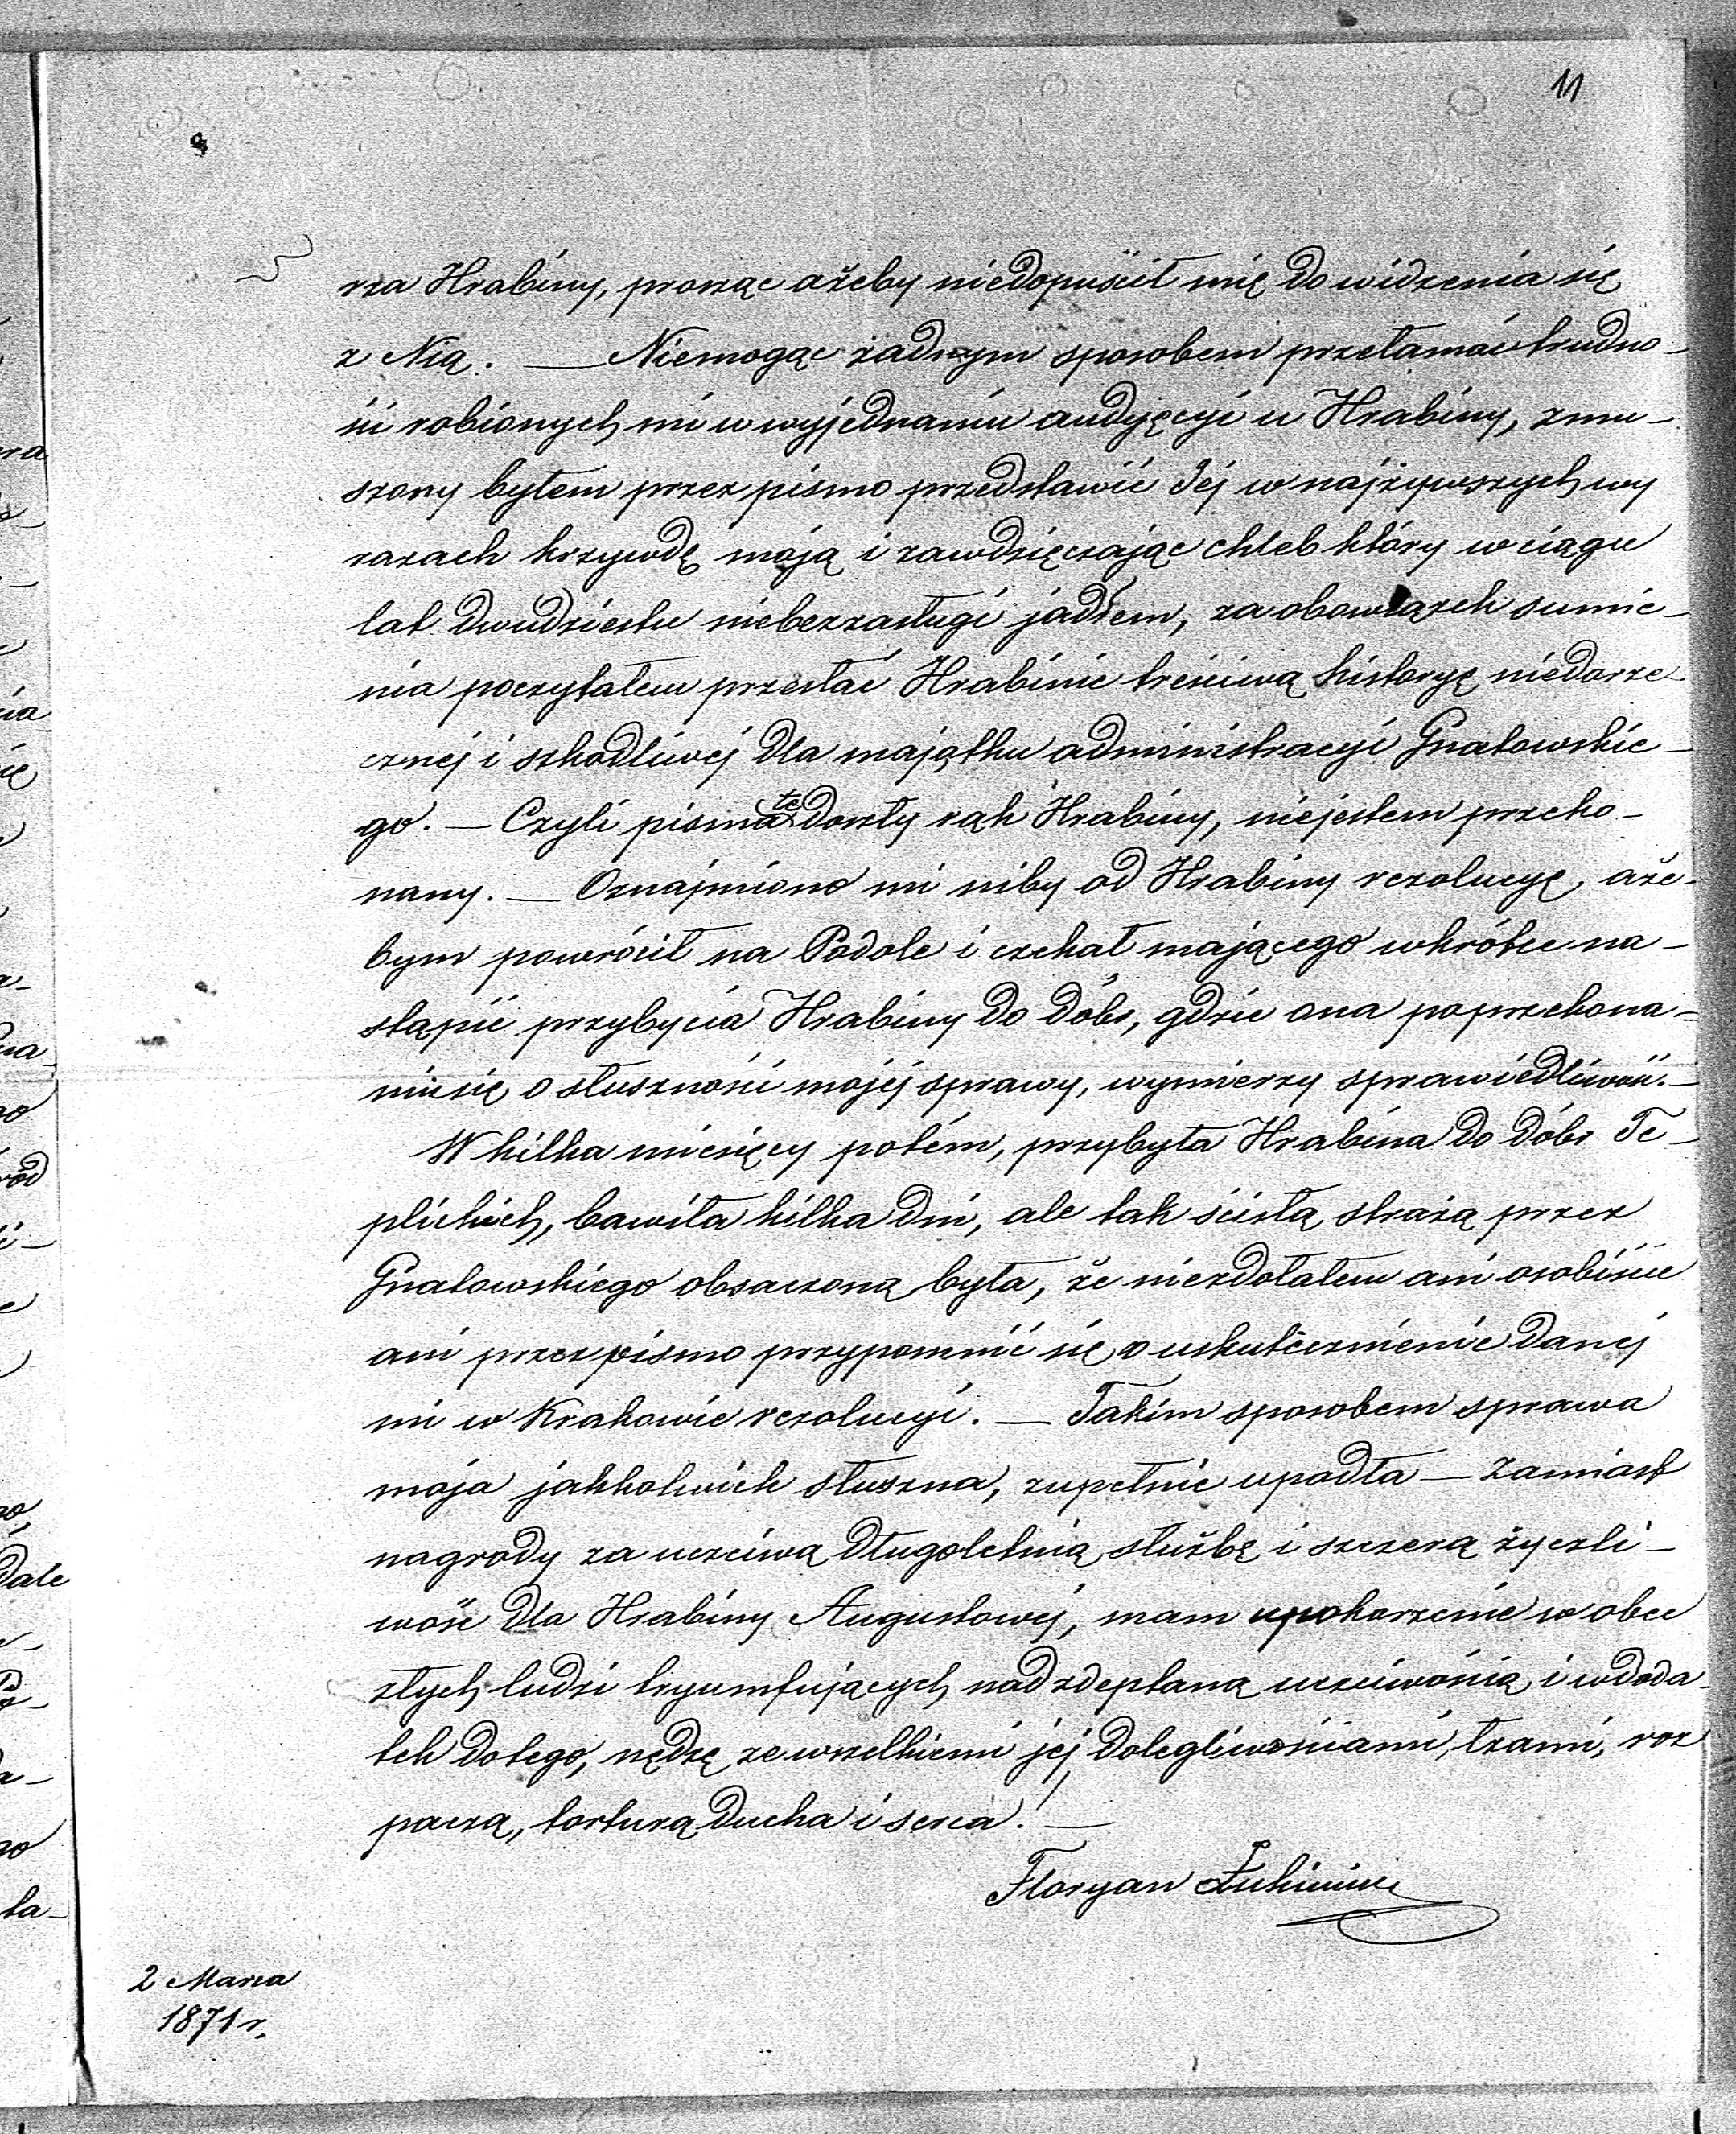 11
rza Hrabiny, prosząc ażeby niedopuścił mię do widzenia się
z Nią. — Niemogąc żadnym sposobem przełamać trudno-
ści robionych mi w wyjednaniu audyęcyi u Hrabiny, zmu-
szony byłem przez pismo przedstawić Jéj w najżywszych wy
razach krzywdę moją i zawdzięczając chleb który w ciągu
lat dwudziestu niebezzasługi jadłem, za obowiązek sumie-
nia poczytałem przesłać Hrabinie treściwą historyę niedorze-
cznej i szkodliwej dla majątku administracyi Gnatowskie-
go. — Czyli pisma te doszły rąk Hrabiny, niejestem przeko-
nany. — Oznajmiono mi niby od Hrabiny rezolucyę, aże-
bym powrócił na Podole i czekał mającego wkrótce na-
stąpić przybycia Hrabiny do dóbr, gdzie ona poprzekona-
niu się o słuszności mojéj sprawy, wymierzy sprawiedliwość. —
W kilka miesięcy potém, przybyła Hrabina do dóbr Te-
plickich, bawiła kilka dni, ale tak ścisłą strażą przez
Gnatowskiego obsaczoną była, że niezdołałem ani osobiście
ani przez pismo przypomnić się o uskutecznienie danéj
mi w Krakowie rezolucyi. — Takim sposobem sprawa
moja jakkolwiek słuszna, zupełnie upadła — Zamiast
nagrody za uczciwą długoletnią służbę i szczerą życzli-
wość dla Hrabiny Augustowéj, mam upokorzenie w obec
złych ludzi tryumfujących nad zdeptaną uczciwością i w doda-
tek do tego, nędzę ze wszelkiemi jéj dolegliwościami, łzami, roz
paczą, torturą ducha i serca! —
Floryan
2 Marca
1871 r.